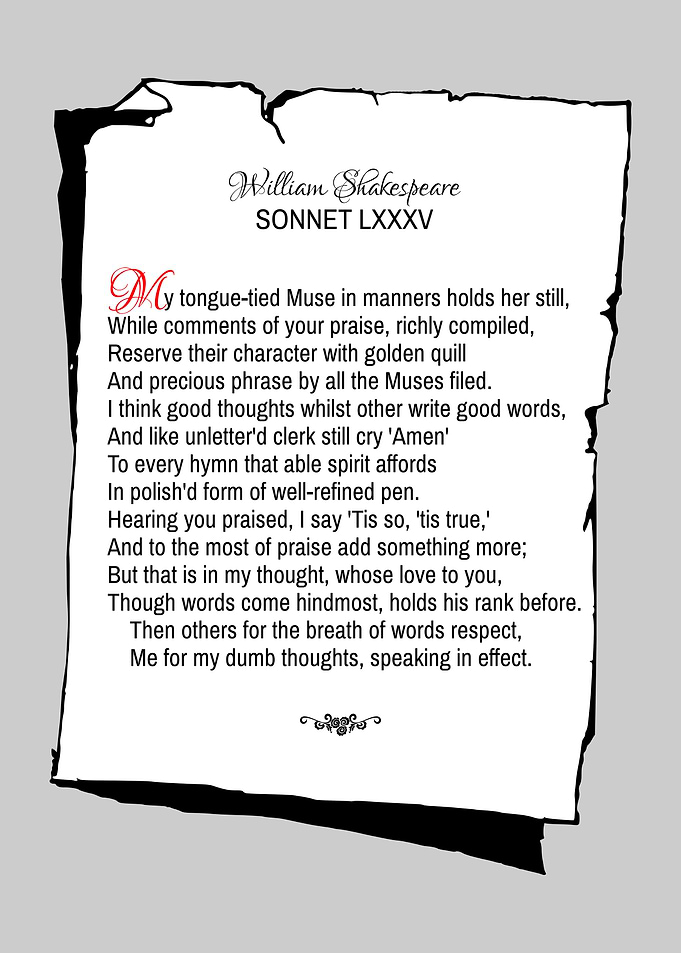 William Shakespeare
SONNET LXXXV
My tongue-tied Muse in manners holds her still,
While comments of your praise, richly compiled,
Reserve their character with golden quill
And precious phrase by all the Muses filed.
I think good thoughts whilst other write good words,
And like unletter'd clerk still cry 'Amen'
To every hymn that able spirit affords
In polish'd form of well-refined pen.
Hearing you praised, I say 'Tis so, 'tis true,'
And to the most of praise add something more;
But that is in my thought, whose love to you,
Though words come hindmost, holds his rank before.
Then others for the breath of words respect,
Me for my dumb thoughts, speaking in effect.